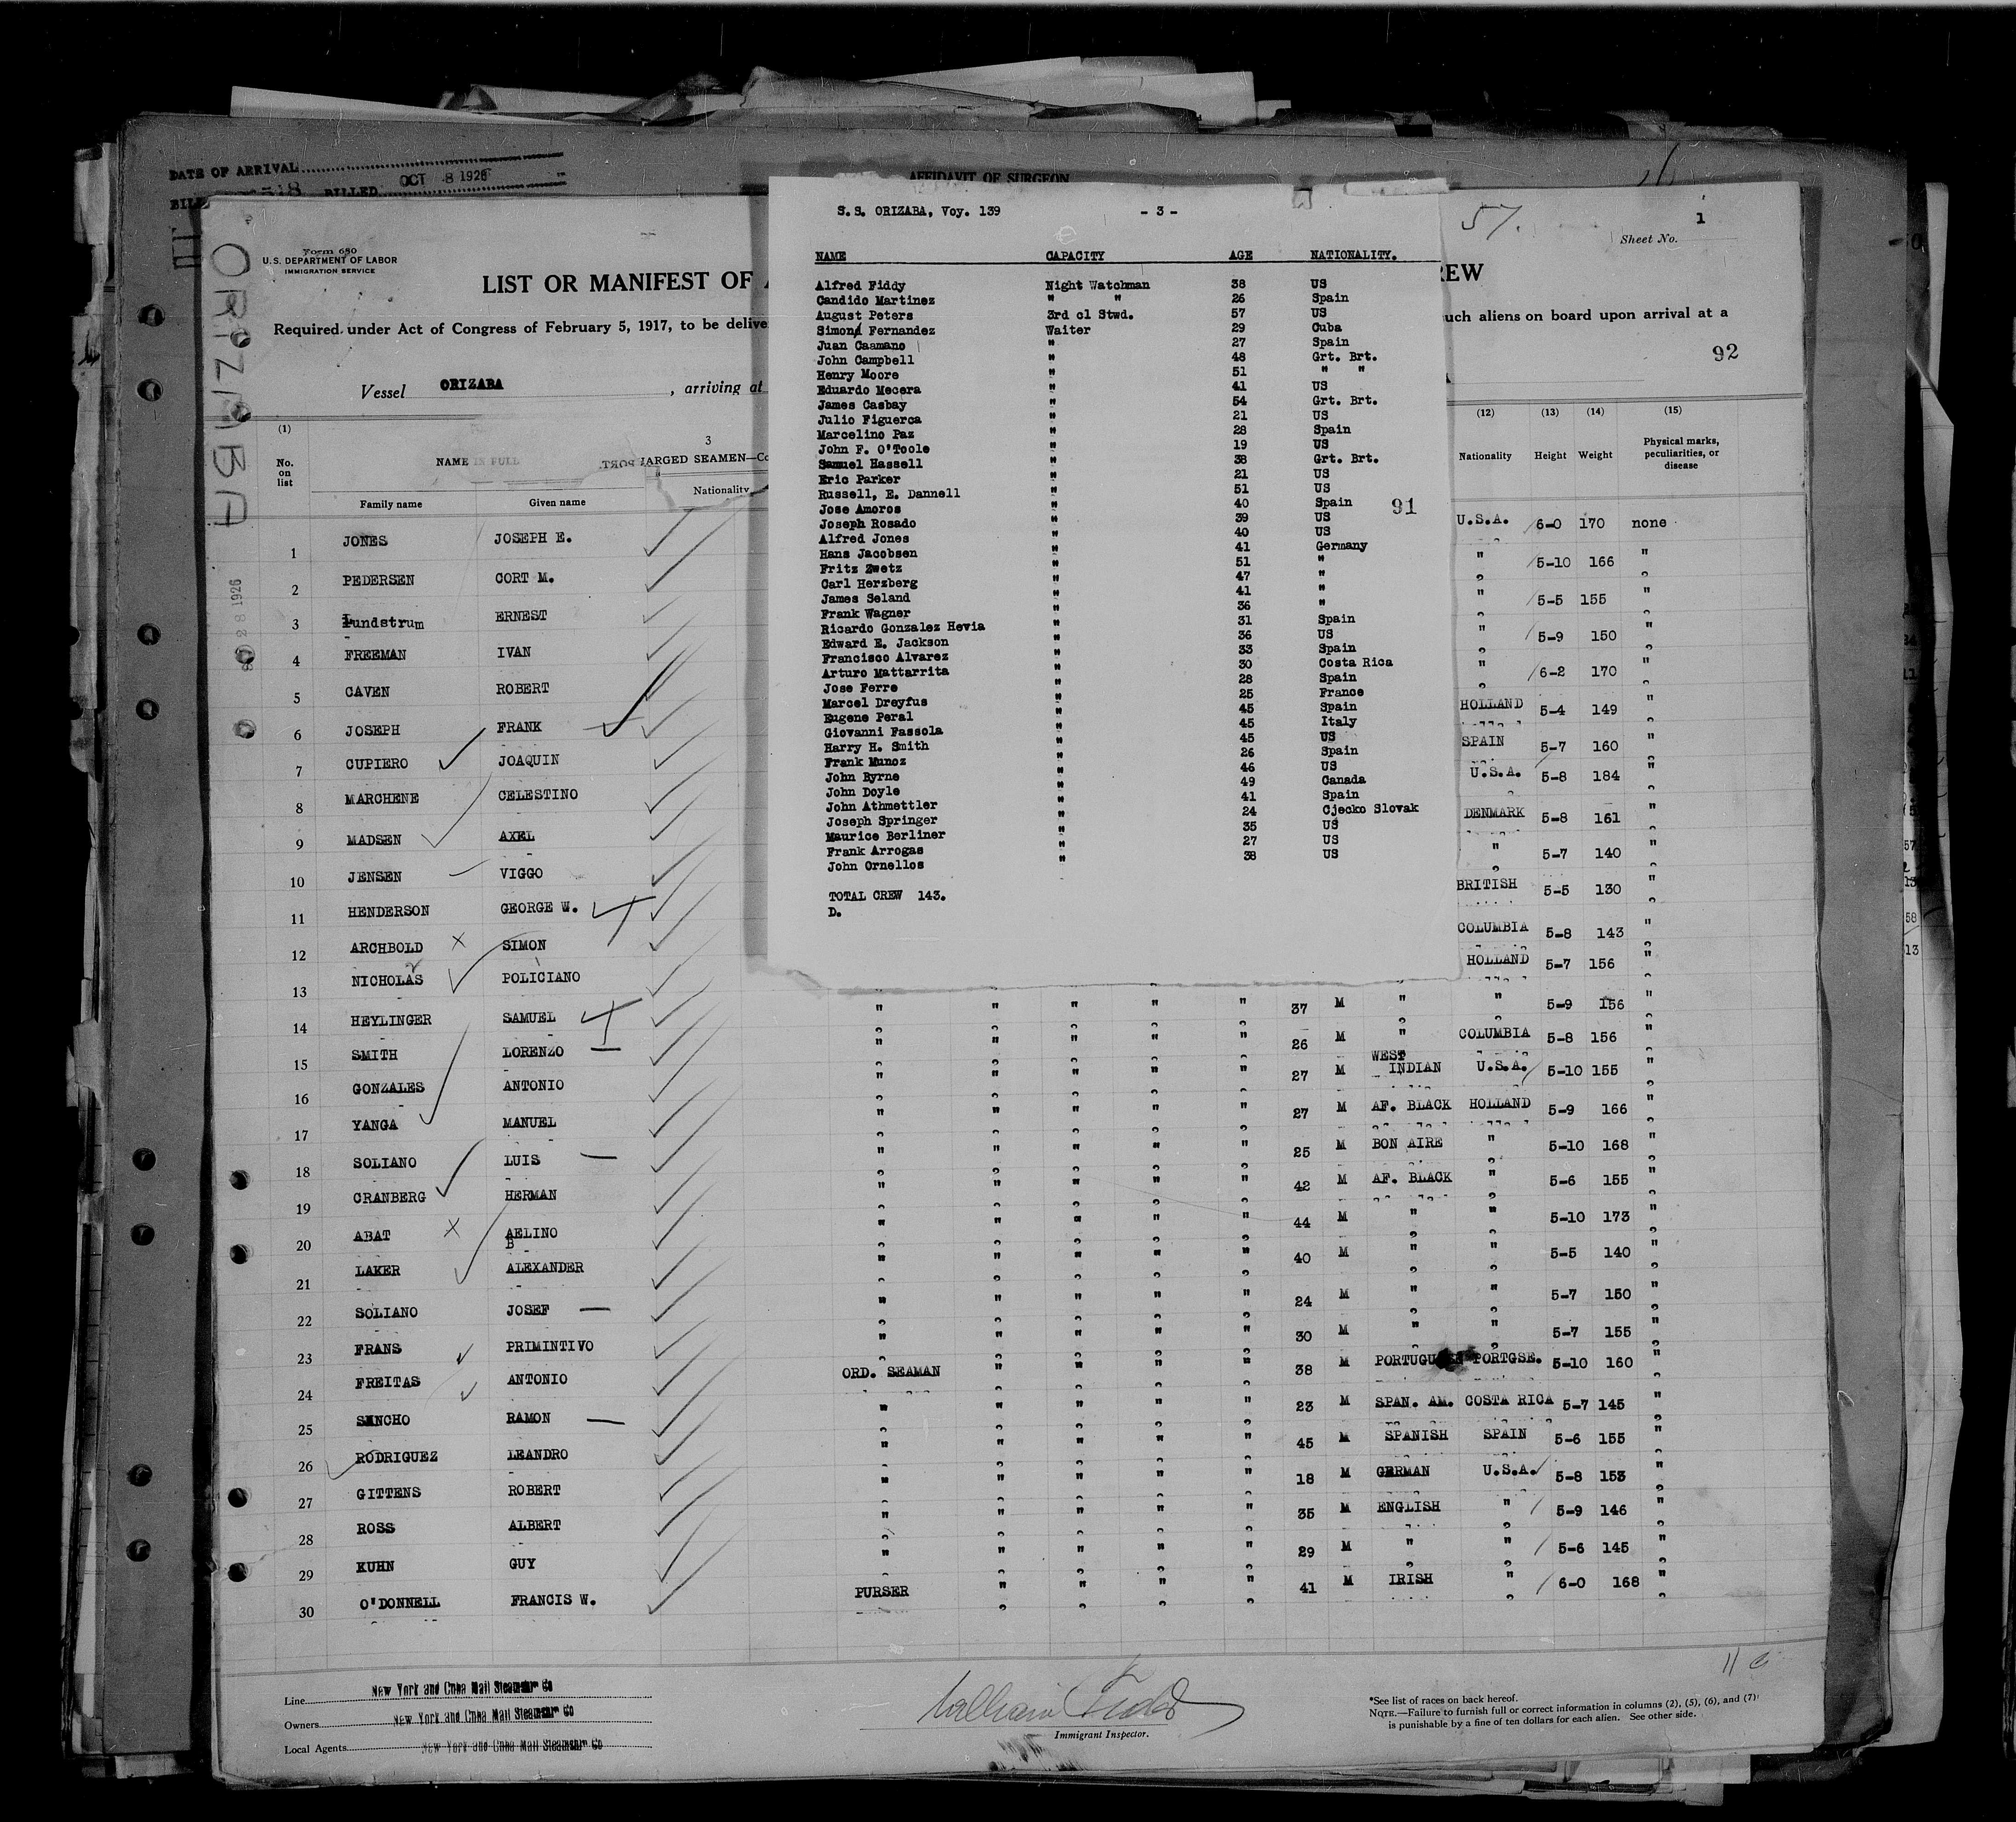 DATE OF ARRIVAL
OCT 8 1926
BILLED
AFFIDAVIT OF SURGEON
S.S. ORIZABA, Voy. 139 - 3 -
NAME CAPACITY AGE NATIONALITY.
Alfred Fiddy Night Watchman 38 US
Candido Martinez " " 26 Spain
August Peters 3rd cl Stwd. 57 US
Simond Fernandez Waiter 29 Cuba
Juan Caamano " 27 Spain
John Campbell " 48 Grt. Brt.
Henry Moore " 51 " "
Eduardo Mecera " 41 US
James Casbay " 54 Grt. Brt.
Julio Figueroa " 21 US
Marcelino Paz " 28 Spain
John F. O'Toole " 19 US
Samuel Hassell " 38 Grt. Brt.
Eric Parker " 21 US
Russell, E. Dannell " 51 US
Jose Amoros " 40 Spain
91
Joseph Rosado " 39 US
Alfred Jones " 40 US
Hans Jacobsen " 41 Germany
Fritz Zwetz " 51 "
Carl Herzberg " 47 "
James Seland " 41 "
Frank Wagner " 36 "
Ricardo Gonzalez Hevia " 31 Spain
Edward E. Jackson " 36 US
Francisco Alvarez " 33 Spain
Arturo Mattarrita " 30 Costa Rica
Jose Ferre " 28 Spain
Marcel Dreyfus " 25 France
Eugene Peral " 45 Spain
Giovanni Fassola " 45 Italy
Harry H. Smith " 45 US
Frank Munoz " 26 Spain
John Byrne " 46 US
John Doyle " 49 Canada
John Athmettler " 41 Spain
Joseph Springer " 24 Cjecko Slovak
Maurice Berliner " 35 US
Frank Arrogas " 27 US
John Ornellos " 38 US
TOTAL CREW 143.
D.
ORIZABA
57.
1
Sheet No.
Form 680
U.S. DEPARTMENT OF LABOR
IMMIGRATION SERVICE
LIST OR MANIFEST OF
REW
Required under Act of Congress of February 5, 1917, to be delive
uch aliens on board upon arrival at a
92
Vessel ORIZABA , arriving at
(1) 3 (12) (13) (14) (15)
No. on list NAME IN FULL ARGED SEAMEN—Co Nationality Height Weight Physical marks, peculiarities, or disease
Family name Given name Nationality
1 JONES JOSEPH E. U.S.A. 6-0 170 none
2 PEDERSEN CORT M. " 5-10 166 "
3 Lundstrum ERNEST " 5-5 155 "
4 FREEMAN IVAN " 5-9 150 "
5 CAVEN ROBERT " 6-2 170 "
6 JOSEPH FRANK HOLLAND 5-4 149 "
7 CUPIERO JOAQUIN SPAIN 5-7 160 "
8 MARCHENE CELESTINO U.S.A. 5-8 184 "
9 MADSEN AXEL DENMARK 5-8 161 "
10 JENSEN VIGGO " 5-7 140 "
11 HENDERSON GEORGE W. BRITISH 5-5 130 "
12 ARCHBOLD SIMON COLUMBIA 5-8 143 "
13 NICHOLAS POLICIANO HOLLAND 5-7 156 "
14 HEYLINGER SAMUEL " " " " " 37 M " " 5-9 156 "
15 SMITH LORENZO " " " " " 26 M " COLUMBIA 5-8 156 "
16 GONZALES ANTONIO " " " " " 27 M WEST INDIAN U.S.A. 5-10 155 "
17 YANGA MANUEL " " " " " 27 M AF. BLACK HOLLAND 5-9 166 "
18 SOLIANO LUIS " " " " " 25 M BON AIRE " 5-10 168 "
19 CRANBERG HERMAN " " " " " 42 M AF. BLACK " 5-6 155 "
20 ABAT AELINO " " " " " 44 M " " 5-10 173 "
B
21 LAKER ALEXANDER " " " " " 40 M " " 5-5 140 "
22 SOLIANO JOSEF " " " " " 24 M " " 5-7 150 "
23 FRANS PRIMINTIVO " " " " " 30 M " " 5-7 155 "
24 FREITAS ANTONIO ORD. SEAMAN " " " " 38 M PORTGSE. 5-10 160 "
25 SANCHO RAMON " " " " " 23 M SPAN. AM. COSTA RICA 5-7 145 "
26 RODRIGUEZ LEANDRO " " " " " 45 M SPANISH SPAIN 5-6 155 "
27 GITTENS ROBERT " " " " " 18 M GERMAN U.S.A. 5-8 153 "
28 ROSS ALBERT " " " " " 35 M ENGLISH " 5-9 146 "
29 KUHN GUY " " " " " 29 M " " 5-6 145 "
30 O'DONNELL FRANCIS W. PURSER " " " " 41 M IRISH " 6-0 168 "
Line New York and Cuba Mail Steamship Co
Owners New York and Cuba Mail Steamship Co
Local Agents New York and Cuba Mail Steamship Co
Immigrant Inspector.
*See list of races on back hereof.
NOTE.—Failure to furnish full or correct information in columns (2), (5), (6), and (7)
is punishable by a fine of ten dollars for each alien. See other side.